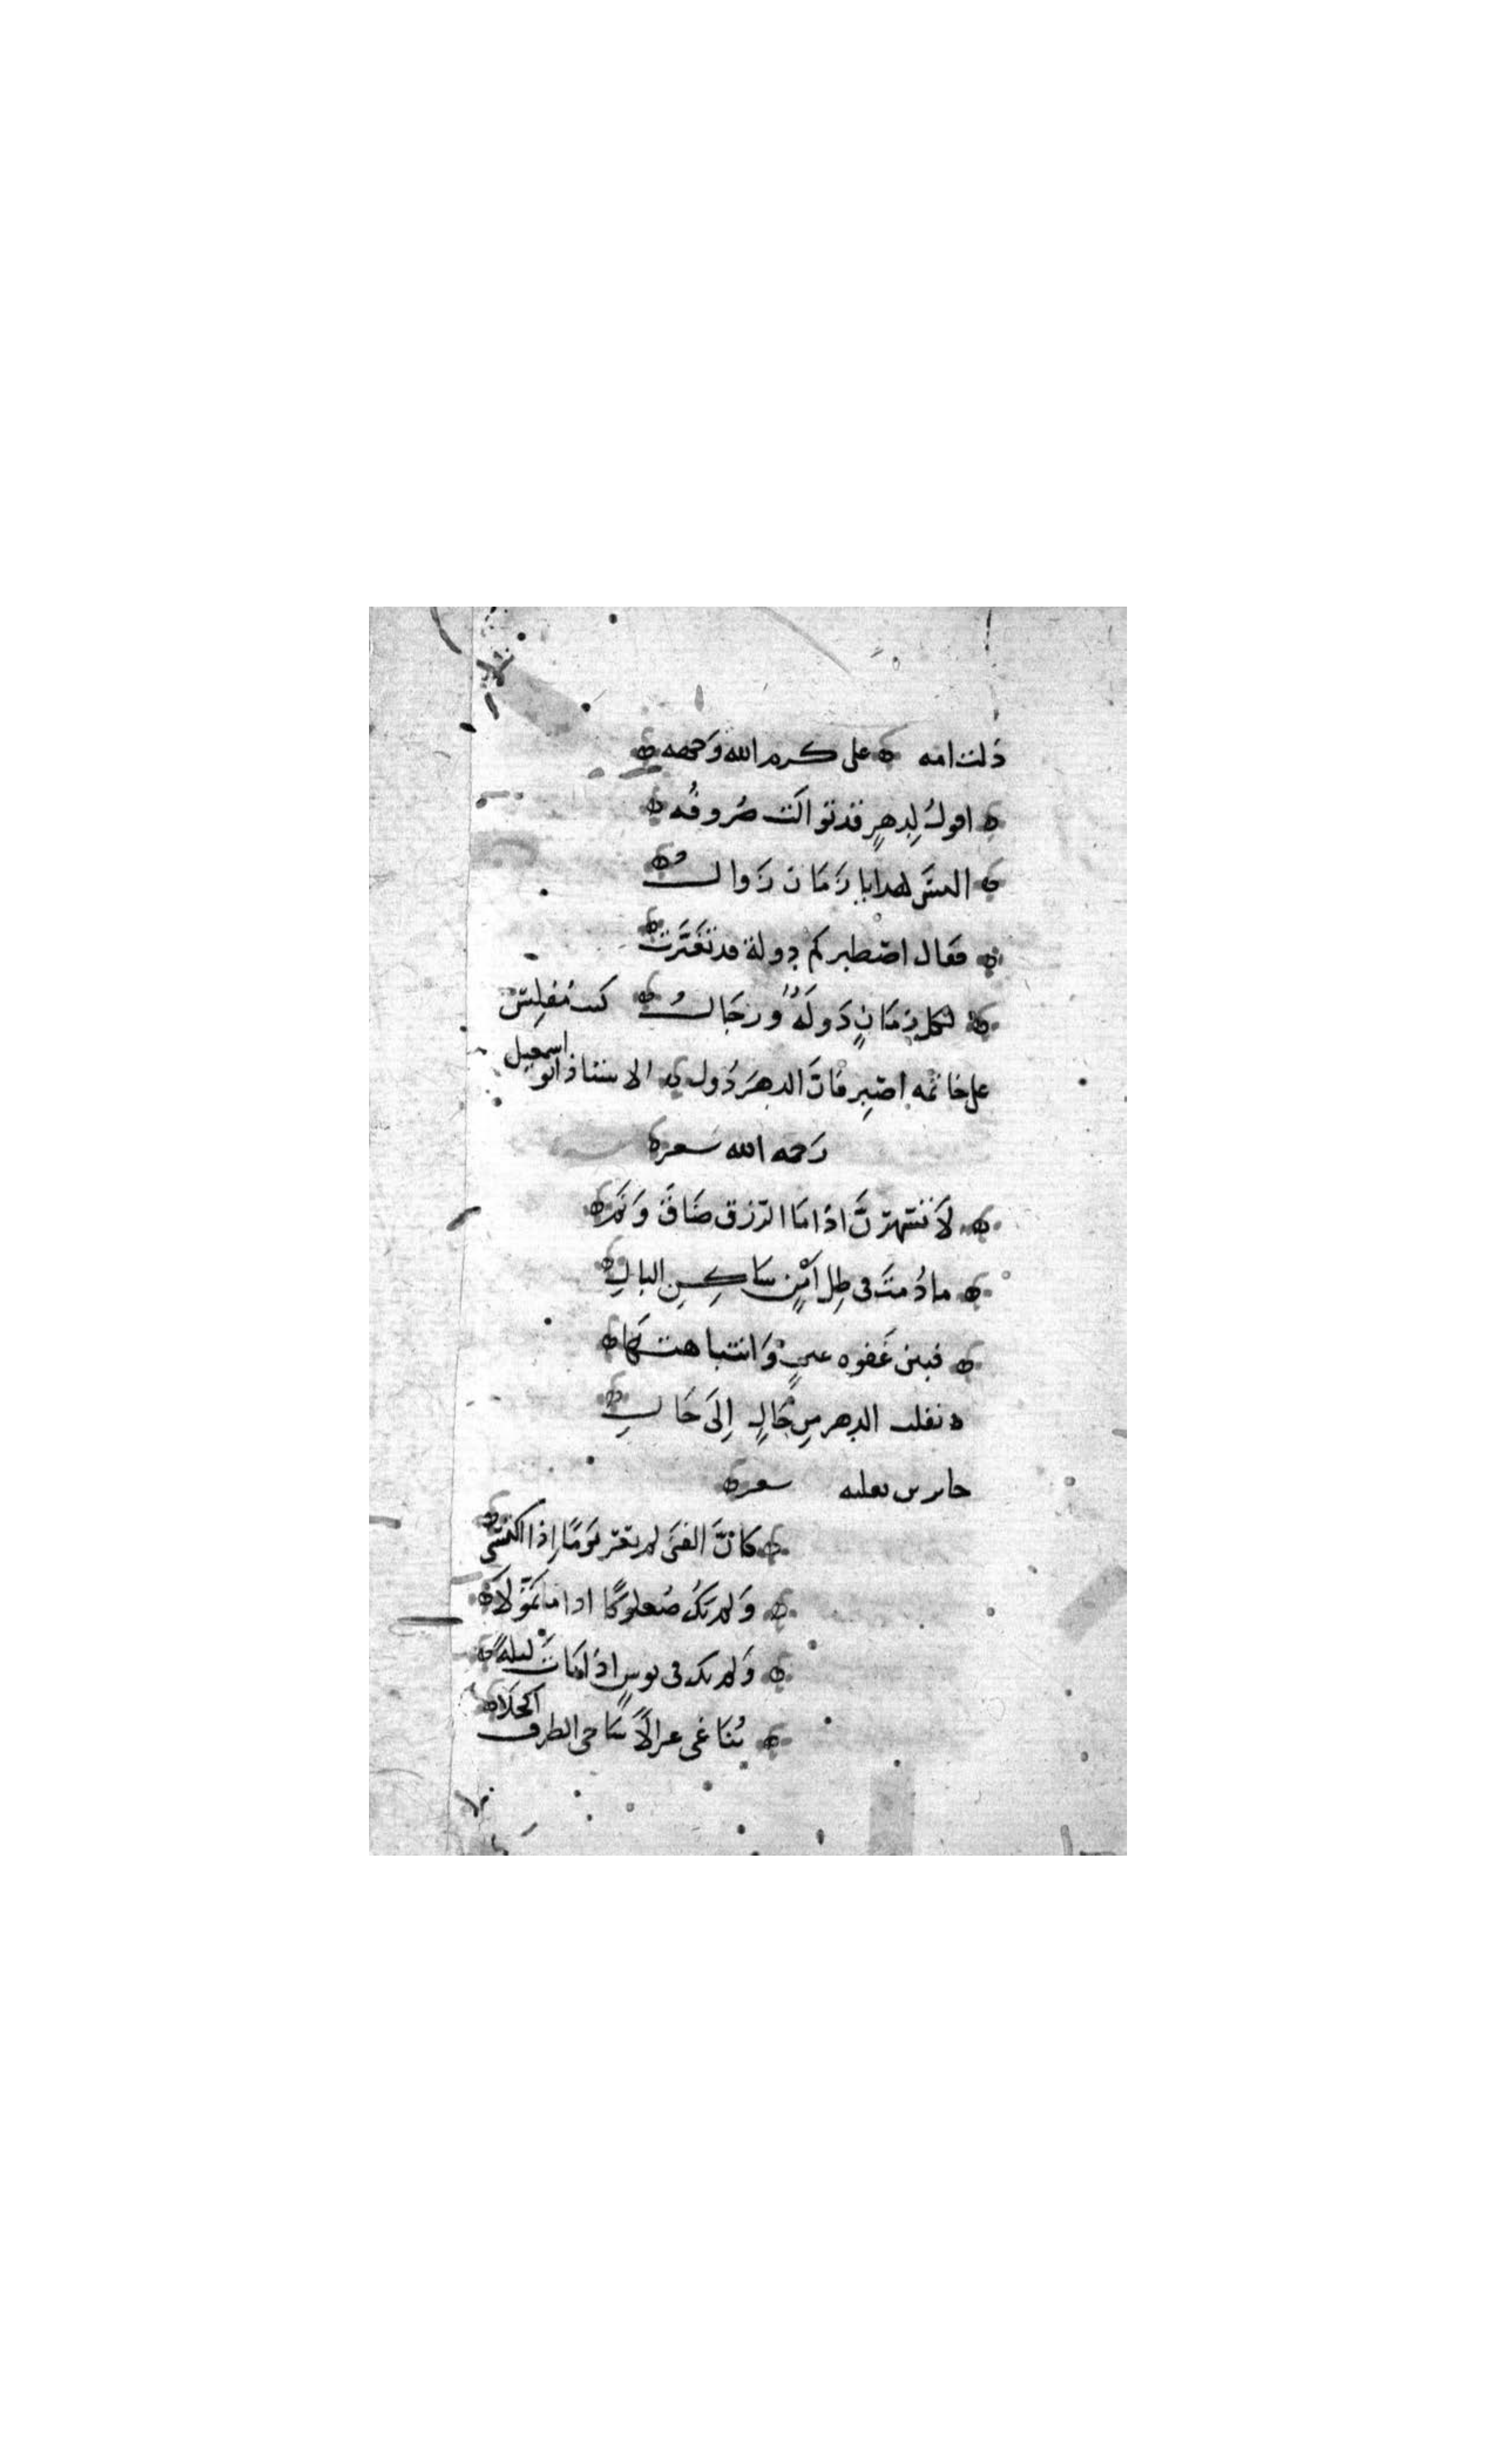 ذلت امه ه على كرم الله وجهه ه
ه اقولُ لِدهرٍ قد توالَت صُروفُه ه
ه اليسَ لهدا يا زَمَان زَوالُ ه
ه فقال اصطبر كم دولة قد تغيَّرَت ه
ه لكل زمَانٍ دَولَةٌ وَرجَالُ ه كتب مُفلِس
على خاتمه اصبِر فانَّ الدهرَ دُول ه الاستاذ ابو اسمعيل
رَحمه الله شعر ه
ه لَا تَسْهرَنَّ اذَا مَا الرّزق ضَاقَ وَنَم ه
ه ما دُمتَ فى ظِل اَمْنٍ سَاكِنِ البالِ ه
ه فبين غَفوه عينٍ وَانتباهتهَا ه
ه تقلب الدهر من حَالٍ اِلَى حَالِ ه
جابر بن ثعلبه شعر ه
ه كانَّ الفتَى لم يَعْرَ يَومًا اِذا اكتسَى ه
ه وَلم يَكُ صُعلوكًا اذا ما تَمَوَّلَا ه
ه وَلم يك فى بوسٍ اذَا بَاتَ لَيلَةً ه
ه يُنَاغى غزالًا سَاجى الطرف اكحَلَا ه